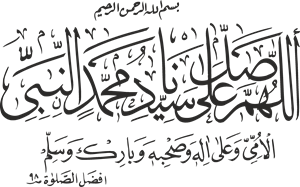 بسم الله الرحمن الرحيم
اللهم صل على سيدنا محمد النبي
الأمي وعلى اله وصحبه وبارك وسلم
افضل الصلوة